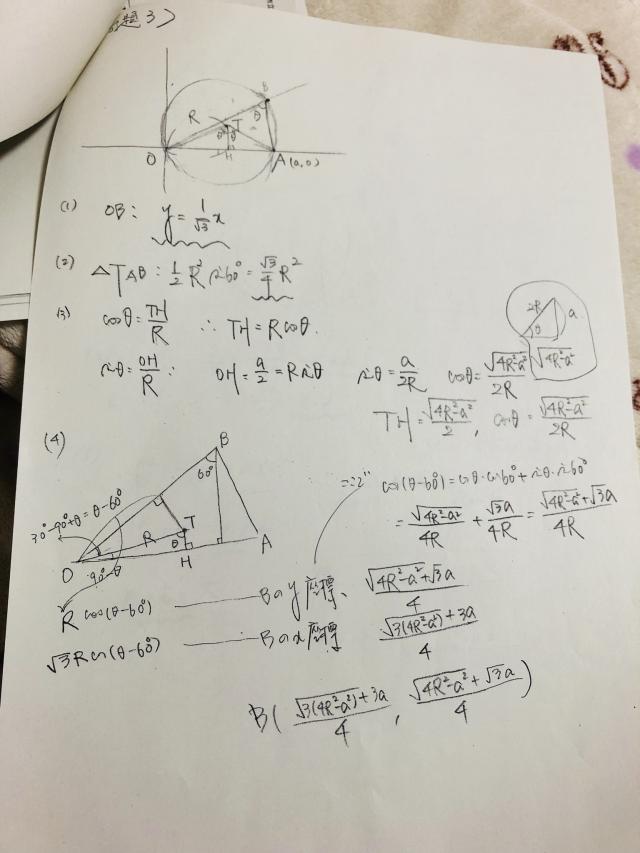 題3)
B
R
T
θ
θ
θ
O
H
A(a,0)
(1) OB: y = 1/√3 x
(2) △TAB: 1/2 R² sin60° = √3/4 R²
(3) cosθ = TH/R ∴ TH = Rcosθ.
2R
a
θ
√4R²-a²
sinθ = OH/R : OH = a/2 = R sinθ sinθ = a/2R cosθ = √4R²-a²/2R
TH = √4R²-a²/2, cosθ = √4R²-a²/2R
(4)
B
60°
30°-90°+θ = θ-60°
R
T
θ
O
90°-θ
H
A
ここで" cos(θ-60°) = cosθ·cos60° + sinθ·sin60°
= √4R²-a²/4R + √3a/4R = √4R²-a²+√3a/4R
R cos(θ-60°) Bのy座標、 √4R²-a²+√3a/4
√3Rcos(θ-60°) Bのx座標 √3(4R²-a²)+3a/4
B( √3(4R²-a²)+3a/4 , √4R²-a²+√3a/4 )